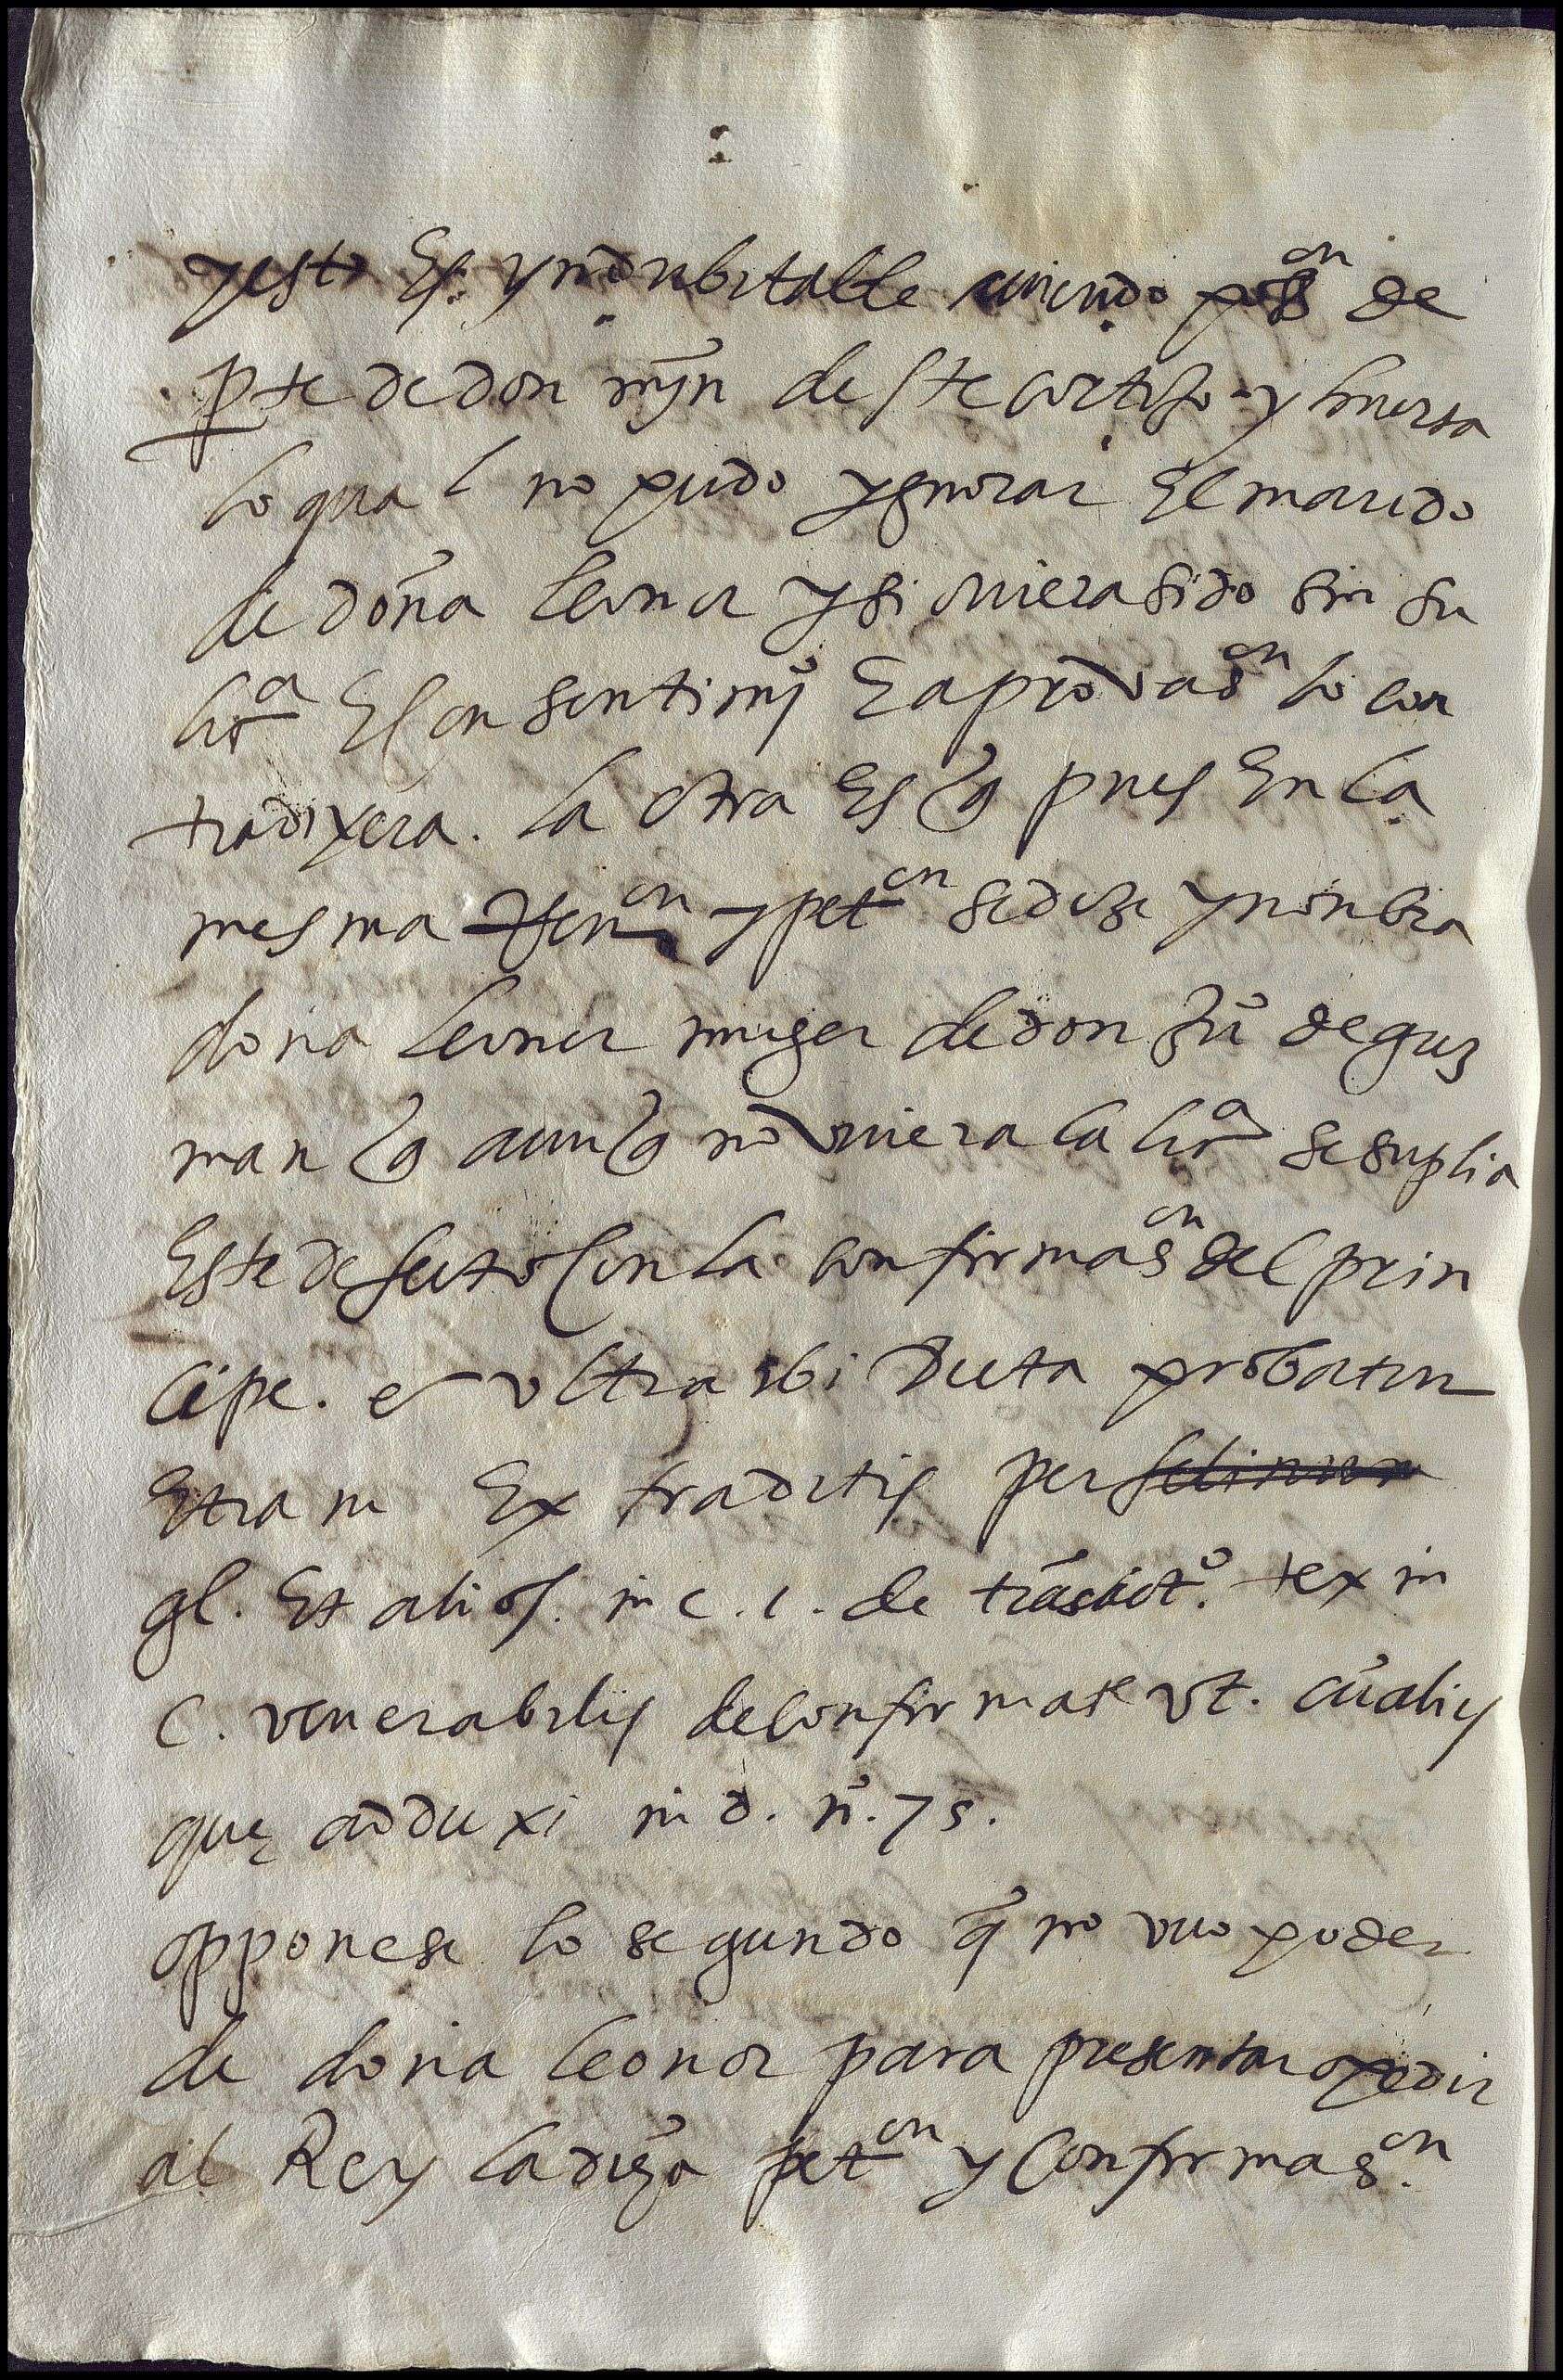 y esto Es yndubitable aviendo poss^on de
pte de don m̃yn deste cortijo y huerta
lo qual no pudo ygnorar El marido
de doña leonor y si oviera sido sin su
liç^a El consentimy° E aprovaç^on lo con
tradixera. la otra Es q̃ pues En la
mesma Ren^on y pet^on se dize y nonbra
doña leonor muger de don Ju° de guz
man q̃ aunq̃ no oviera la liç^a se suplia
Este defecto Con la confirmaç^on del prin
cipe. et ultra ibi dicta probatur
Etiam Ex traditis per felinum
gl. Et alios. in c. 1. de trãsact°. tex in
C. venerabilis de confirmat ut. cũ aliis
quę adduxi in d. n°. 75.
opponese lo segundo q̃ no uuo poder
de doña leonor para presentar o pedir
al Rey la dicha pet^on y Confirmaç^on.